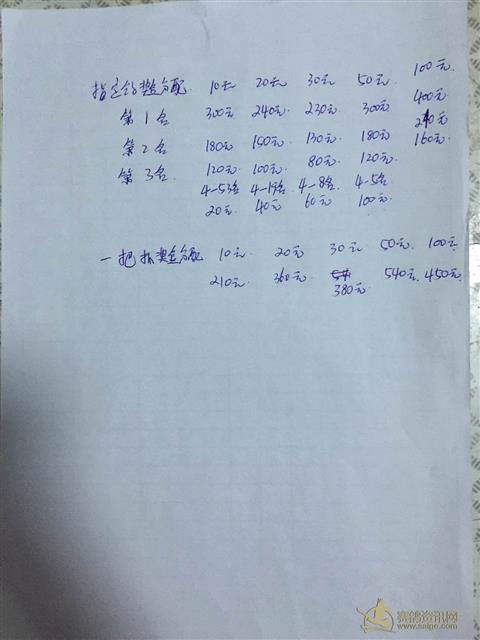 指定鸽奖金分配 10元 20元 30元 50元 100元
第1名 300元 240元 230元 300元 400元
第2名 180元 150元 130元 180元 240元
第3名 120元 100元 80元 120元 160元
4-53名 4-19名 4-8名 4-5名
20元 40元 60元 100元
一把抓奖金分配 10元 20元 30元 50元 100元
210元 360元 380元 540元 450元
赛鸽资讯网
www.saige.com